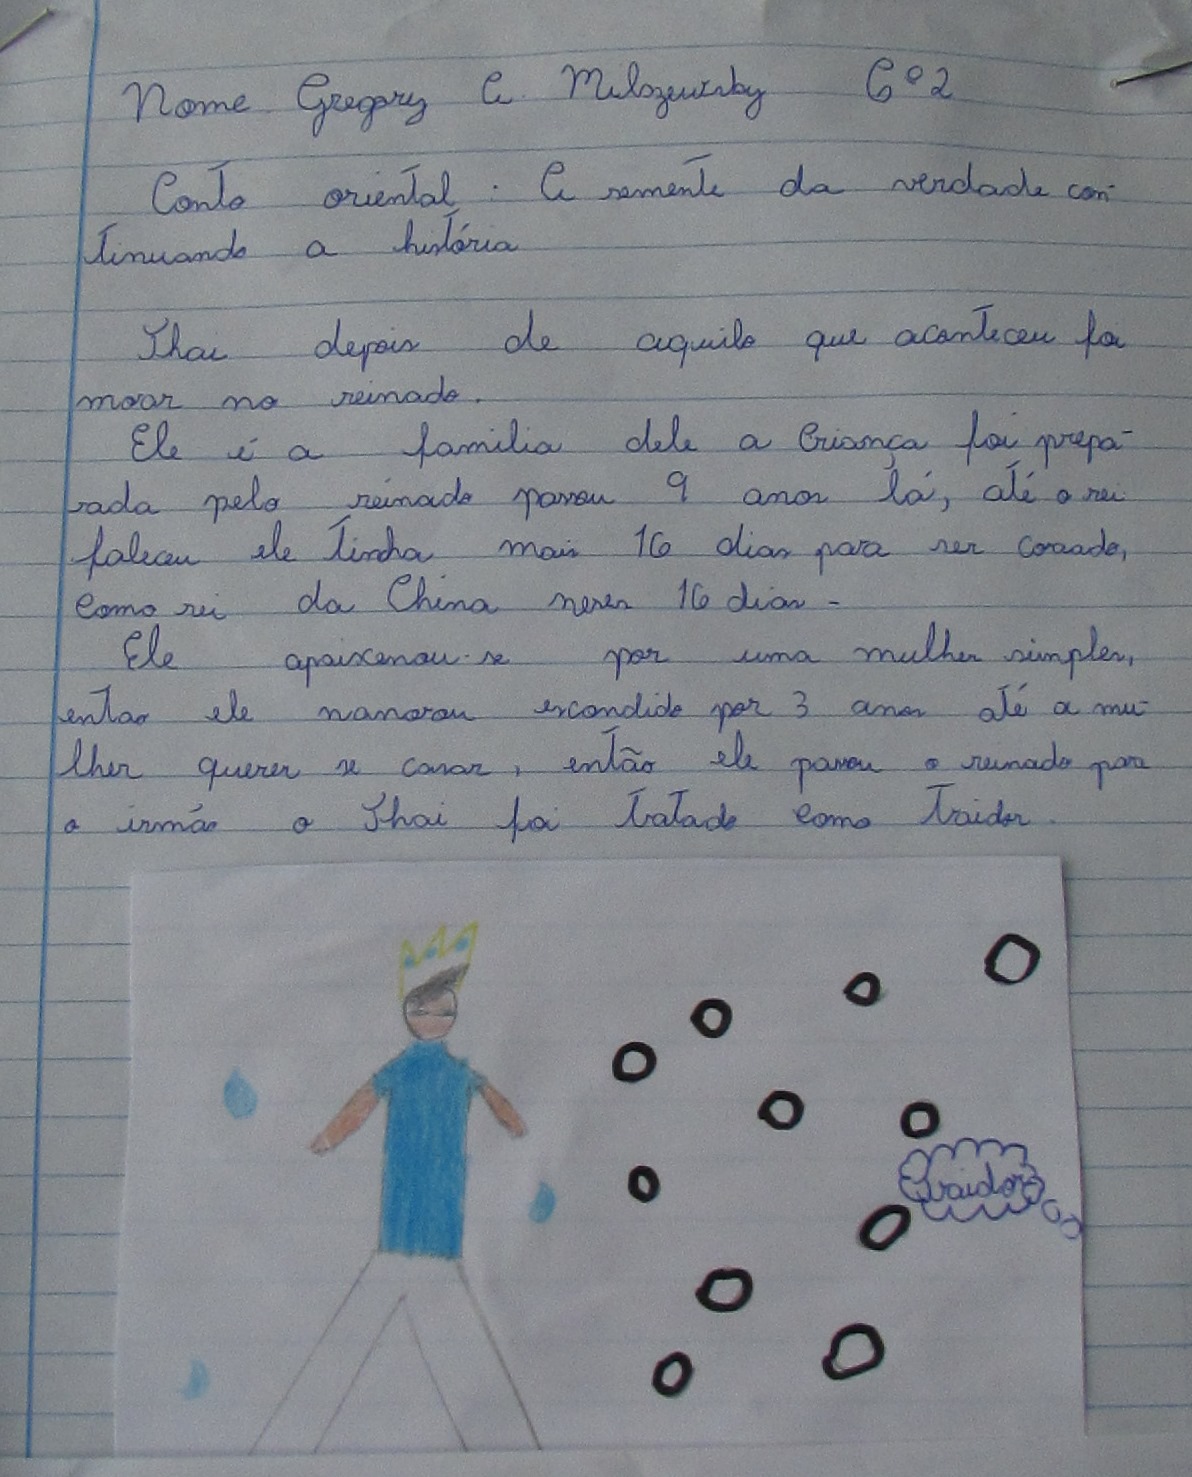 Nome Gregory A. Milszewsby 6º2
Conto oriental: A semente da verdade con-
tinuando a história
Thai depois de aquilo que aconteceu foi
moar no reinado.
Ele é a familia dele a Criança foi prepa-
rada pelo reinado passou 9 anos lá, até o rei
faleceu ele tinha mais 16 dias para ser coroado,
como rei da China neses 16 dias-
Ele apaixonou-se por uma mulher simples,
entao ele namorou escondido por 3 anos até a mu-
lher querer se casar, então ele passou o reinado para
o irmão o Thai foi tratado como traidor.
traidor